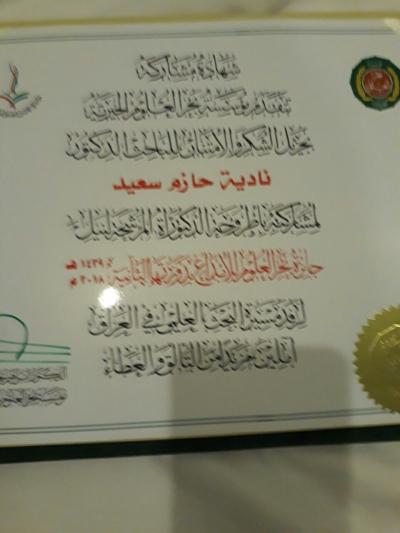 شهادة مشاركة
تتقدم مؤسسة بحر العلوم الخيرية
بجزيل الشكر والامتنان للباحث الدكتور
نادية حازم سعيد
لمشاركته باطروحة الدكتوراة المرشحة لنيل
جائزة بحر العلوم للابداع بدورتها الثامنة: ١٤٣٩ هـ
٢٠١٨ م
لرفد مسيرة البحث العلمي في العراق
آملين مزيدا من التألق والعطاء